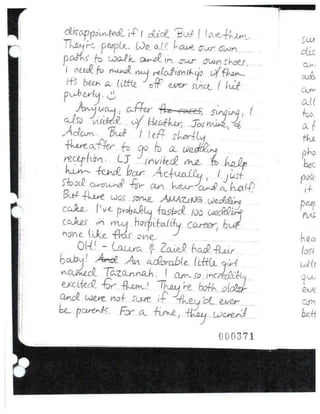 disappointed if I did. But I love them.
They're people. We all have our own
paths to walk and in our own shoes.
I need to mend my relationship w/ them
It's been a little off ever since I hit
puberty. ☺
Anyway, after the races, singing, I
also visited w/ Heather, Jasmine, &
Adam. But I left shortly
thereafter to go to a wedding
reception. LJ invited me to help
him tend bar. Actually, I just
stood around for an hour and a half.
But there was some AMAZING wedding
cake. I've probably tasted 100 wedding
cakes in my hospitality career, but
none like this one.
OH! - Laura & Zaiel had their
baby! And An adorable little girl
named Tazannah. I am so incredibly
excited for them! They're both older
and were not sure if they'd ever
be parents. For a time, they weren't
000371